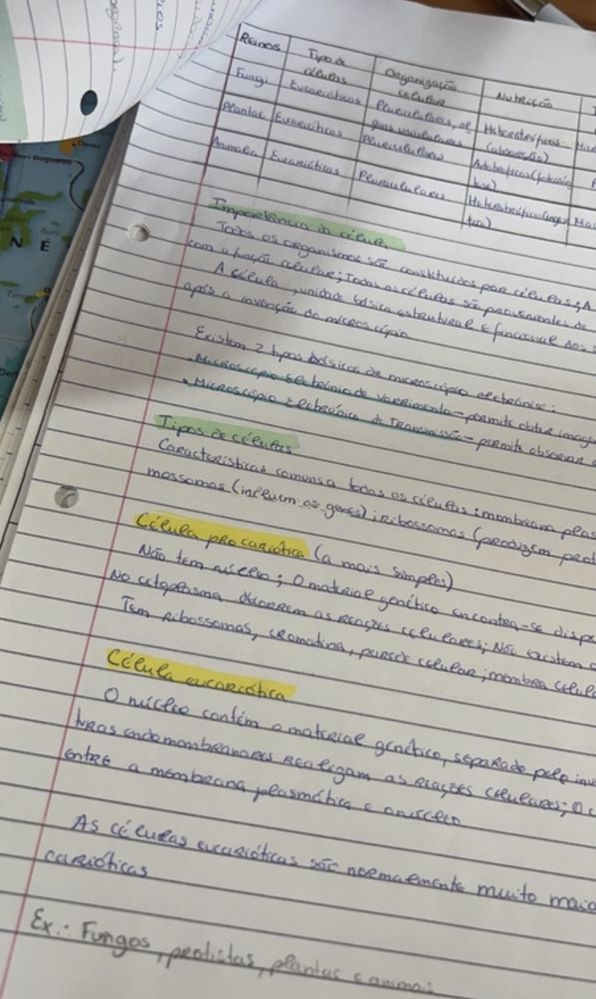 Reinos | Tipo de células | Organização celular | Nutrição
Fungi | Eucarióticas | Pluricelulares, al gumas unicelulares | Heterotróficos (absorção)
Plantae | Eucarióticas | Pluricelulares | Autotróficos (fotossín tese)
Animalia | Eucarióticas | Pluricelulares | Heterotróficos (inges tão)
Importância da célula
Todos os organismos são constituídos por células; A
com a função celular; Todas as células são provenientes de
A célula, unidade básica estrutural e funcional dos
após a invenção do microscópio
Existem 2 tipos básicos de microscópio eletrónico:
• Microscópio eletrónico de varrimento - permite obter imag
• Microscópio Electrónico de Transmissão - permite observar
Tipos de células
Características comuns a todas as células: membrana plas
mossomas (incluem os genes); ribossomas (produzem prot
Célula procariótica (a mais simples)
Não tem núcleo; O material genético encontra-se disp
No citoplasma decorrem as reações celulares; Não existem
Tem ribossomas, cromatina, parede celular, membra celul
Célula eucariótica
O núcleo contém o material genético, separado pelo inv
turas endomembranares realizam as reações celulares; O c
entre a membrana plasmática e o núcleo
As células eucarióticas são normalmente muito maio
carióticas
Ex.: Fungos, protistas, plantas e animais
N É